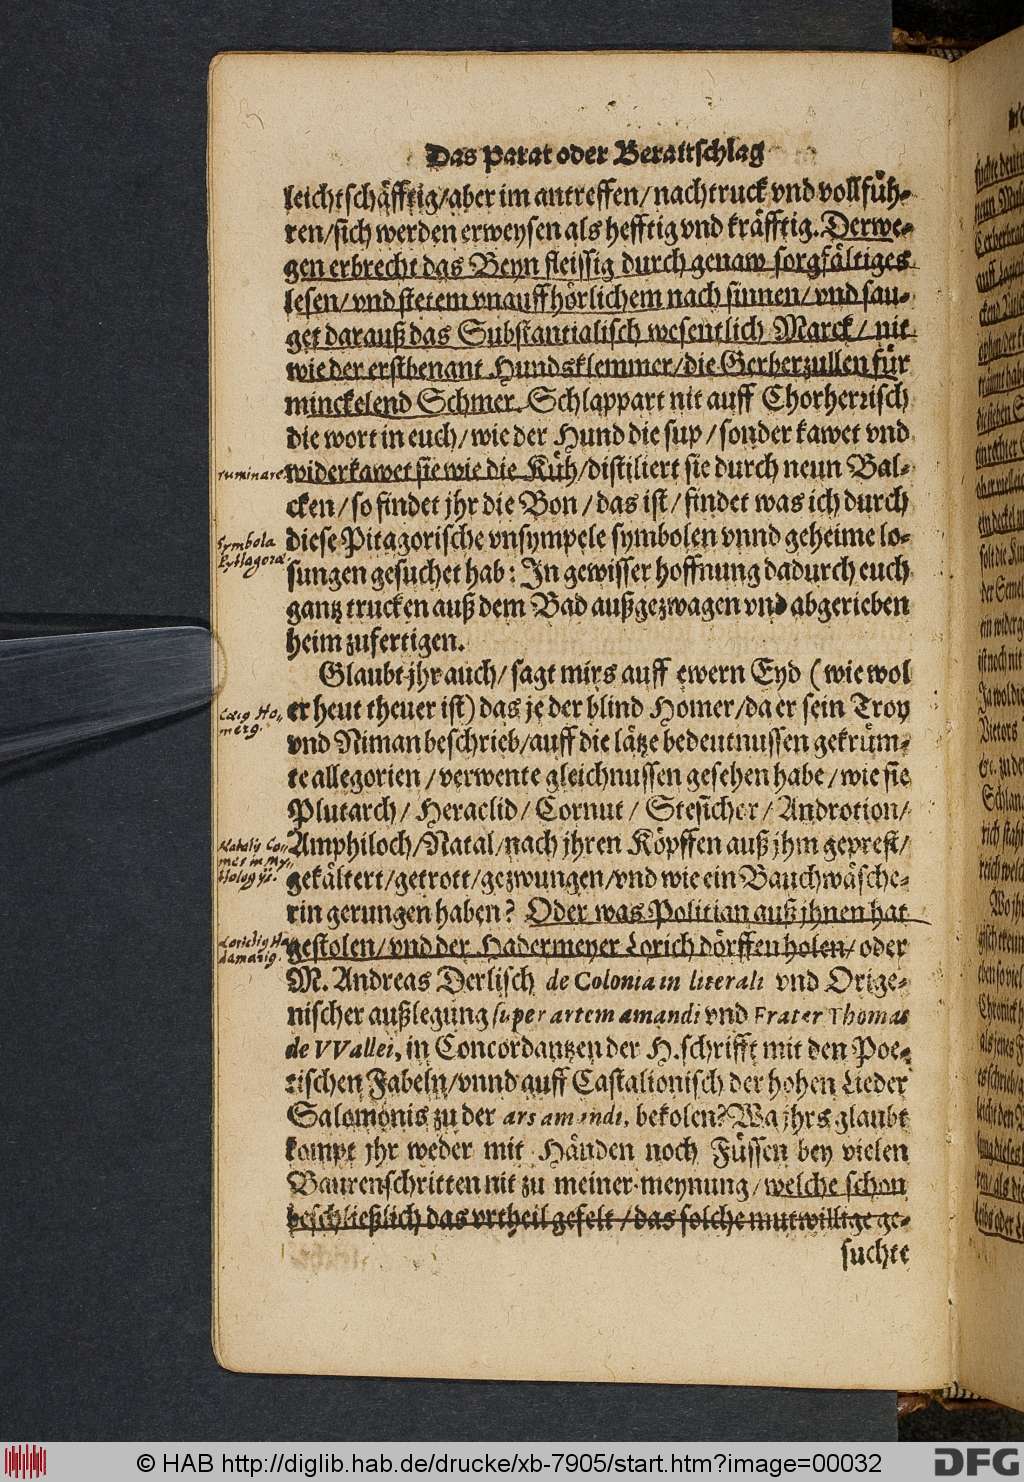 Das Parat oder Berattschlag
leichtschäfftig/aber im antreffen/nachtruck vnd vollfüh-
ren/sich werden erweysen als hefftig vnd kräfftig. Derwe-
gen erbrecht das Beyn fleissig durch genaw sorgfältiges
lesen/vnd stetem vnauffhörlichem nach sinnen/vnd sau-
get darauß das Substantialisch wesentlich Marck/nit
wie der erstbenant Hundsklemmer/die Gerberzullen für
minckelend Schmer. Schlappart nit auff Chorherrisch
die wort in euch/wie der Hund die sup/sonder kawet vnd
ruminare
widerkawet sie wie die Küh/distiliert sie durch neun Bal-
cken/so findet jhr die Bon/das ist/findet was ich durch
Symbola
Pythagorae
diese Pitagorische vnsympele symbolen vnnd geheime lo-
sungen gesuchet hab: In gewisser hoffnung dadurch euch
gantz trucken auß dem Bad außgezwagen vnd abgerieben
heim zufertigen.
Glaubt jhr auch/sagt mirs auff ewern Eyd (wie wol
er heut theuer ist) das je der blind Homer/da er sein Troy
vnd Niman beschrieb/auff die lätze bedeutnussen gekrüm-
te allegorien/verwente gleichnussen gesehen habe/wie sie
Plutarch/Heraclid/Cornut/Stesicher/Androtion/
Natalis Co-
mes in My-
thologys.
Amphiloch/Natal/nach jhren Köpffen auß jhm geprest/
gekältert/getrott/gezwungen/vnd wie ein Bauchwäsche-
rin gerungen haben? Oder was Politian auß jhnen hat
gestolen/vnd der Hadermeyer Lorich dörffen holen/oder
M. Andreas Derlisch de Colonia in literali vnd Orige-
nischer außlegung super artem amandi vnd Frater Thomas
de VVallei, in Concordantzen der H. schrifft mit den Poe-
tischen Fabeln/vnnd auff Castalionisch der hohen Lieder
Salomonis zu der ars amandi, bekolen? Wa jhrs glaubt
kompt jhr weder mit Händen noch Füssen bey vielen
Baurenschritten nit zu meiner meynung/welche schon
beschließlich das vrtheil gefelt/das solche mutwillige ge-
suchte
© HAB http://diglib.hab.de/drucke/xb-7905/start.htm?image=00032
DFG